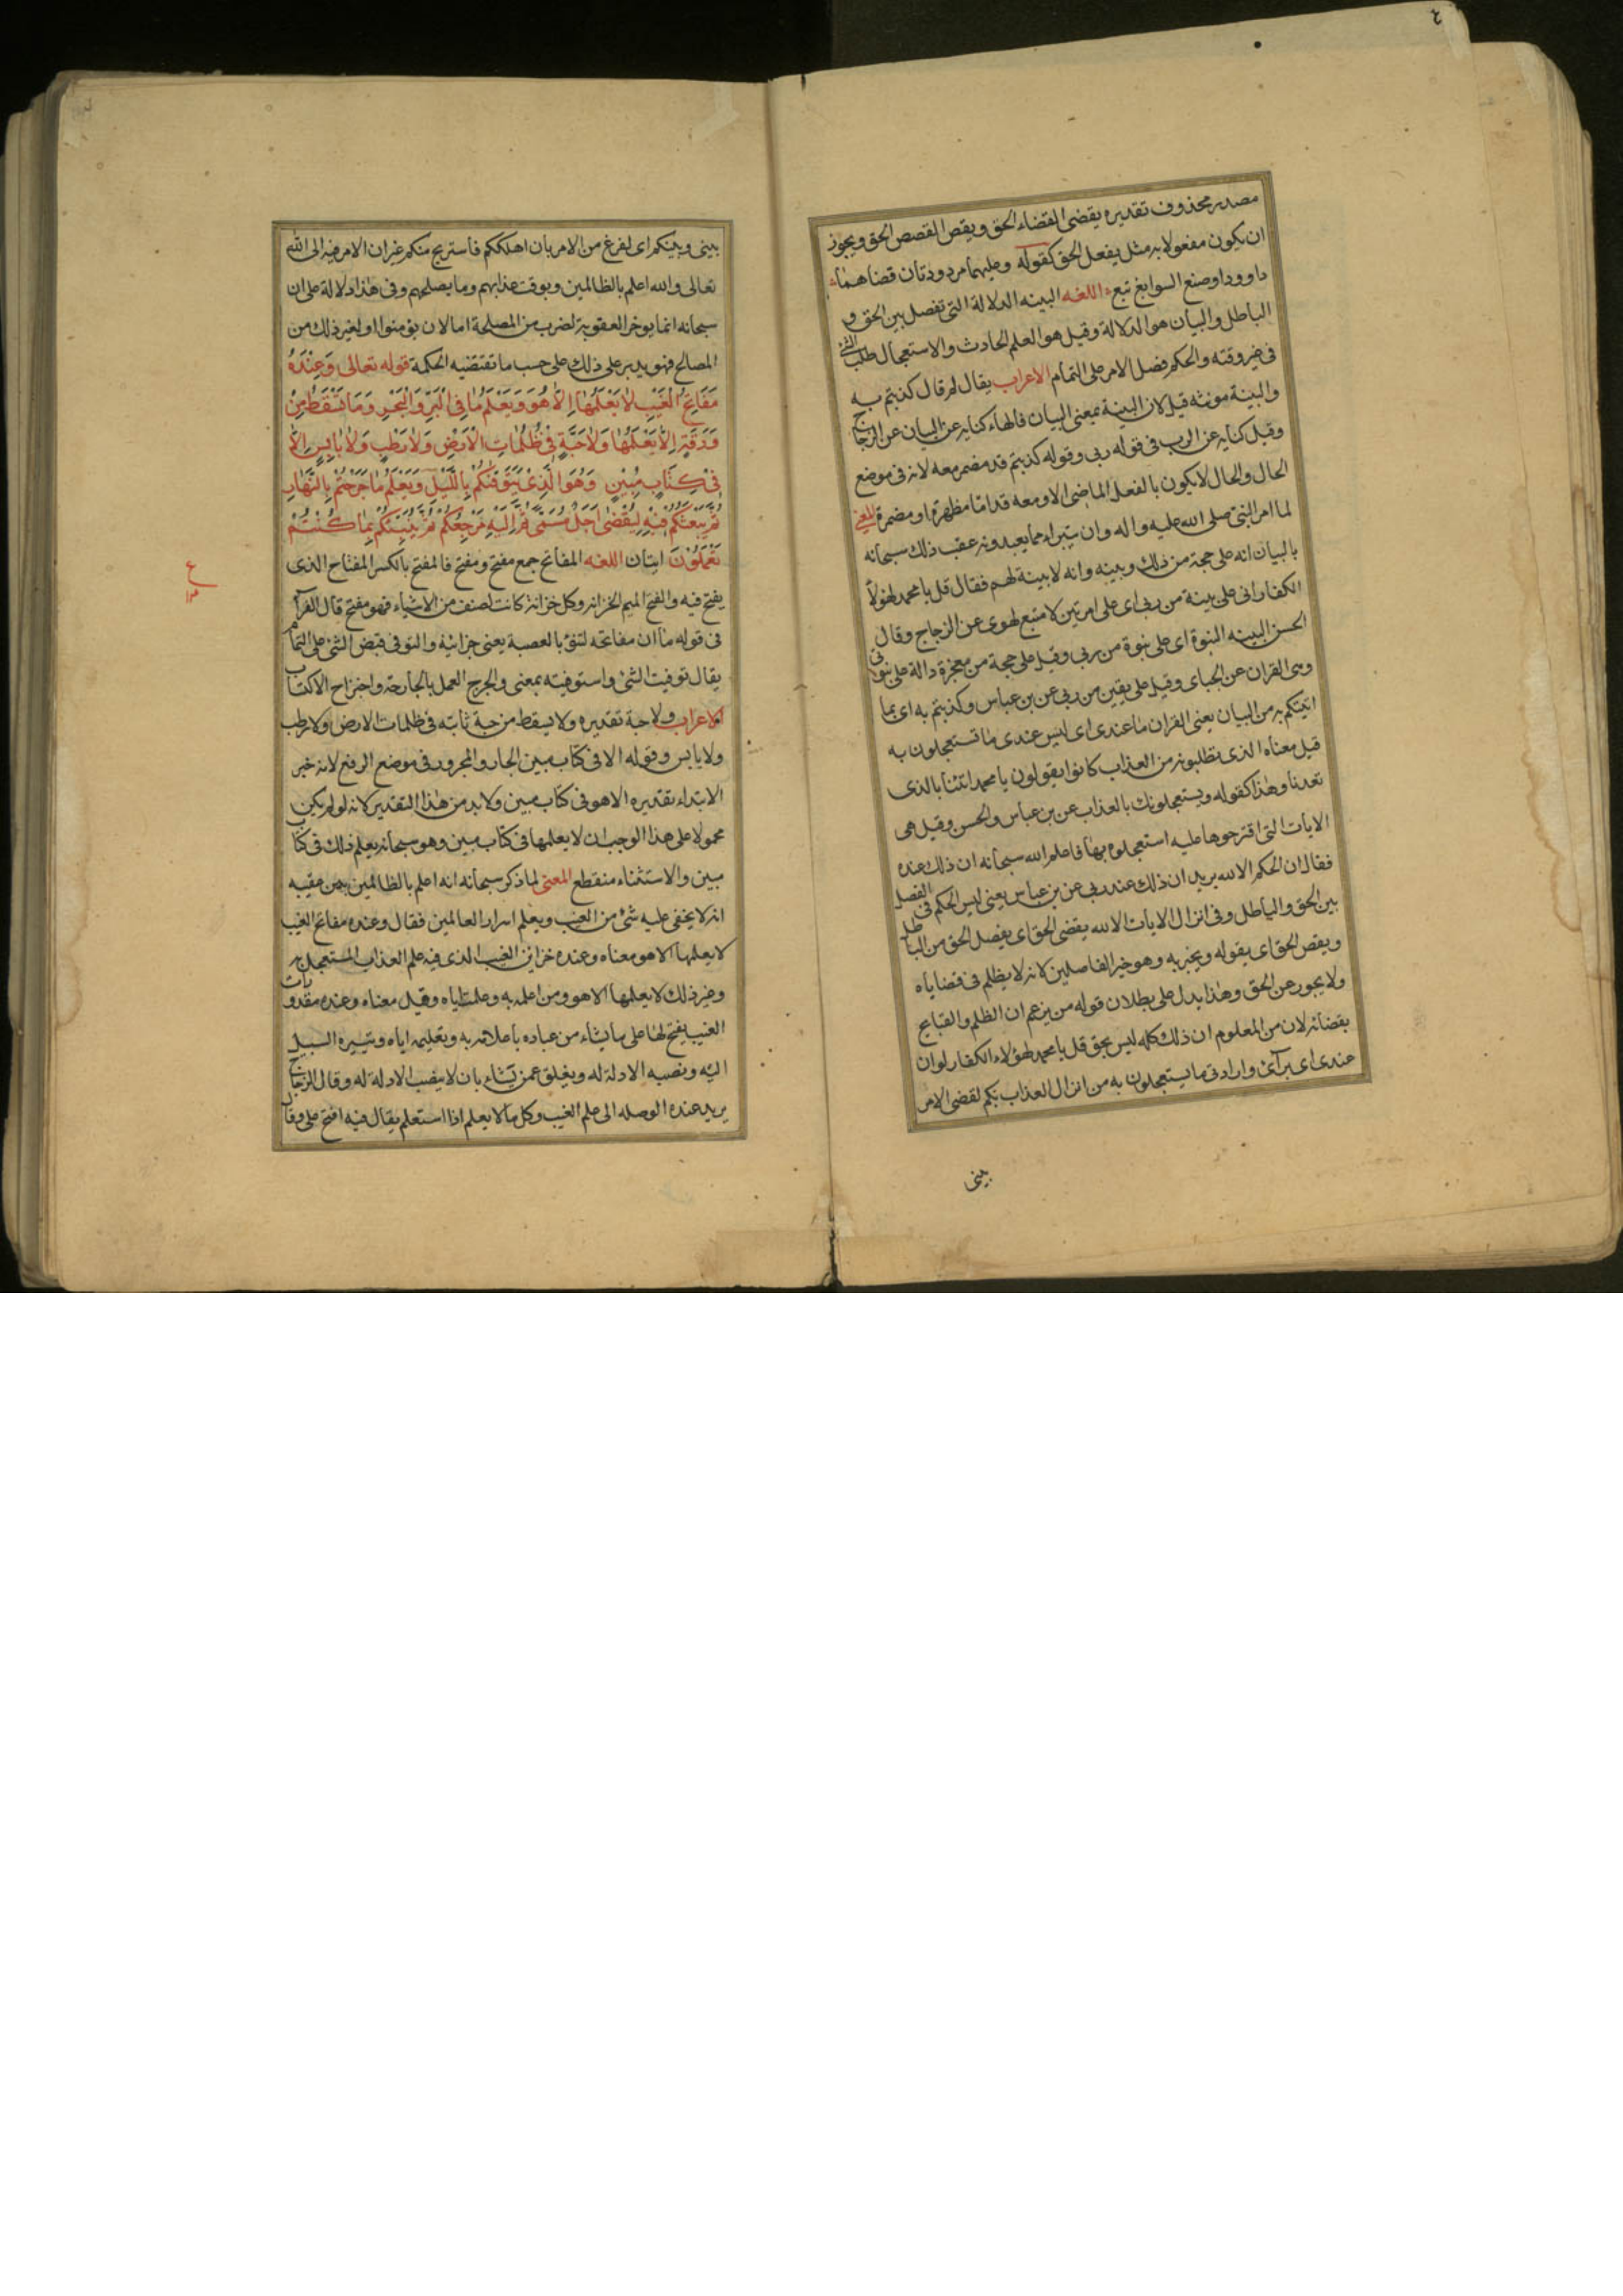 ٤
مصدر محذوف تقديره يقضى القضاء الحق ويقص القصص الحق ويجوز
ان يكون مفعولا به مثل يفعل الحق كقوله وعليهما مردودتان قضاهما
داوود او صنع السوابغ تبع اللغه البينه الدلالة التى تفصل بين الحق و
الباطل والبيان هو الدلالة وقيل هو العلم الحادث والاستعجال طلب الشئ
فى غير وقته والحكم فصل الامر على التمام الاعراب يقال لم قال كذبتم به
والبينة مونثه قيل لان البينة بمعنى البيان فالهاء كنايه عن البيان عن الزجاج
وقيل كنايه عن الرب فى قوله ربى وقوله كذبتم قد مضمر معه لانه فى موضع
الحال والحال لا يكون بالفعل الماضى الا ومعه قد اما مظهرة او مضمرة المعنى
لما امر النبى صلى الله عليه واله وان يتبراء مما يعبدونه عقب ذلك سبحانه
بالبيان انه على حجة من ذلك وبينه وانه لا بينة لهم فقال قل يا محمد لهولاء
الكفار انى على بينة من ربى اى على امر بين لا متبع لهوى عن الزجاج وقال
الحسن البينه النبوة اى على نبوة من ربى وقيل على حجة من معجزة دالة على نبوتى
وهى القران عن الجباى وقيل على يقين من ربى عن بن عباس وكذبتم به اى بما
اتيتكم به من البيان يعنى القران ما عندى اى ليس عندى ما تستعجلون به
قيل معناه الذى تطلبونه من العذاب كانوا يقولون يا محمد ائتنا بالذى
تعدنا وهذا كقوله ويستعجلونك بالعذاب عن بن عباس والحسن وقيل هى
الايات التى اقترحوها عليه استعجلوه بها فاعلم الله سبحانه ان ذلك عنده
فقال ان الحكم الا لله يريد ان ذلك عند ربى عن بن عباس يعنى ليس الحكم فى الفصل
بين الحق والباطل وفى انزال الايات الا لله يقضى الحق اى يفصل الحق من الباطل
ويقص الحق اى يقوله ويخبر به وهو خير الفاصلين لانه لا يظلم فى قضاياه
ولا يجور عن الحق وهذا يدل على بطلان قوله من يزعم ان الظلم والقبايح
بقضائه لان من المعلوم ان ذلك كله ليس بحق قل يا محمد لهؤلاء الكفار لو ان
عندى اى برأئ وارادتى ما يستعجلون به من انزال العذاب بكم لقضى الامر
بينى
بينى وبينكم اى لفرغ من الامر بان اهلككم فاستريح منكم غير ان الامر فيه الى الله
تعالى والله اعلم بالظالمين وبوقت عذابهم وما يصلحهم وفى هذا دلالة على ان
سبحانه انما يوخر العقوبة لضرب من المصلحة اما لان يؤمنوا او لغير ذلك من
المصالح فهو يدبر على ذلك على حسب ما تقتضيه الحكمة قوله تعالى وَعِنْدَهُ
مَفَاتِحُ الْغَيْبِ لاٰ يَعْلَمُهٰا اِلاّٰ هُوَ وَيَعْلَمُ مٰا فِى الْبَرِّ وَالْبَحْرِ وَمَا تَسْقُطُ مِنْ
وَرَقَةٍ اِلاّٰ يَعْلَمُهٰا وَلاٰ حَبَّةٍ فِىْ ظُلُمٰاتِ الْاَرْضِ وَلاٰ رَطْبٍ وَلاٰ يٰابِسٍ اِلاّٰ
فِىْ كِتٰابٍ مُبِيْنٍ وَهُوَ الَّذِىْ يَتَوَفّٰكُمْ بِاللَّيْلِ وَيَعْلَمُ مٰا جَرَحْتُمْ بِالنَّهٰارِ
ثُمَّ يَبْعَثُكُمْ فِيْهِ لِيُقْضٰى اَجَلٌ مُسَمًّى ثُمَّ اِلَيْهِ مَرْجِعُكُمْ ثُمَّ يُنَبِّئُكُمْ بِمٰا كُنْتُمْ
تَعْمَلُوْنَ ايتان اللغه المفاتح جمع مفتح ومفتح فالمفتح بالكسر المفتاح الذى
يفتح فيه والفتح الميم الخزانه وكل خزانة كانت لصنف من الاشياء فهو مفتح قال الفرآء
فى قوله ما ان مفاتحه لتنؤ بالعصبة يعنى خزائنه والتوفى قبض الشئ على التمام
يقال توفيت الشئ واستوفيته بمعنى والجرح العمل بالجارحة واجتراح الاكتساب
الاعراب ولا حبة تقديره ولا يسقط من حبة ثابته فى ظلمات الارض ولا رطب
ولا يابس وقوله الا فى كتاب مبين الجار والمجرور فى موضع الرفع لانه خبر
الابتداء تقديره الا هو فى كتاب مبين ولابد من هذا التقدير لانه لو لم يكن
محمولا على هذا لوجب ان لا يعلمها فى كتاب مبين وهو سبحانه يعلم ذلك فى كتاب
مبين والاستثناء منقطع المعنى لما ذكر سبحانه انه اعلم بالظالمين بين عقيبه
انه لا يخفى عليه شئ من الغيب ويعلم اسرار العالمين فقال وعنده مفاتح الغيب
لا يعلمها الا هو معناه وعنده خزاين الغيب الذى فيه علم العذاب المستعجل به
وغير ذلك لا يعلمها الا هو ومن اعلمه به وعلمه اياه وقيل معناه وعنده مقدورات
الغيب يفتح لها على ما يشاء من عباده باعلامه به وتعليمه اياه وتيسيره السبيل
اليه ونصبه الادلة له ويغلق عمن يشاء بان لا ينصب الادلة له وقال الزجاج
يريد عنده الوصله الى علم الغيب وكل ما لا يعلم اذا استعلم يقال فيه افتح على وقال